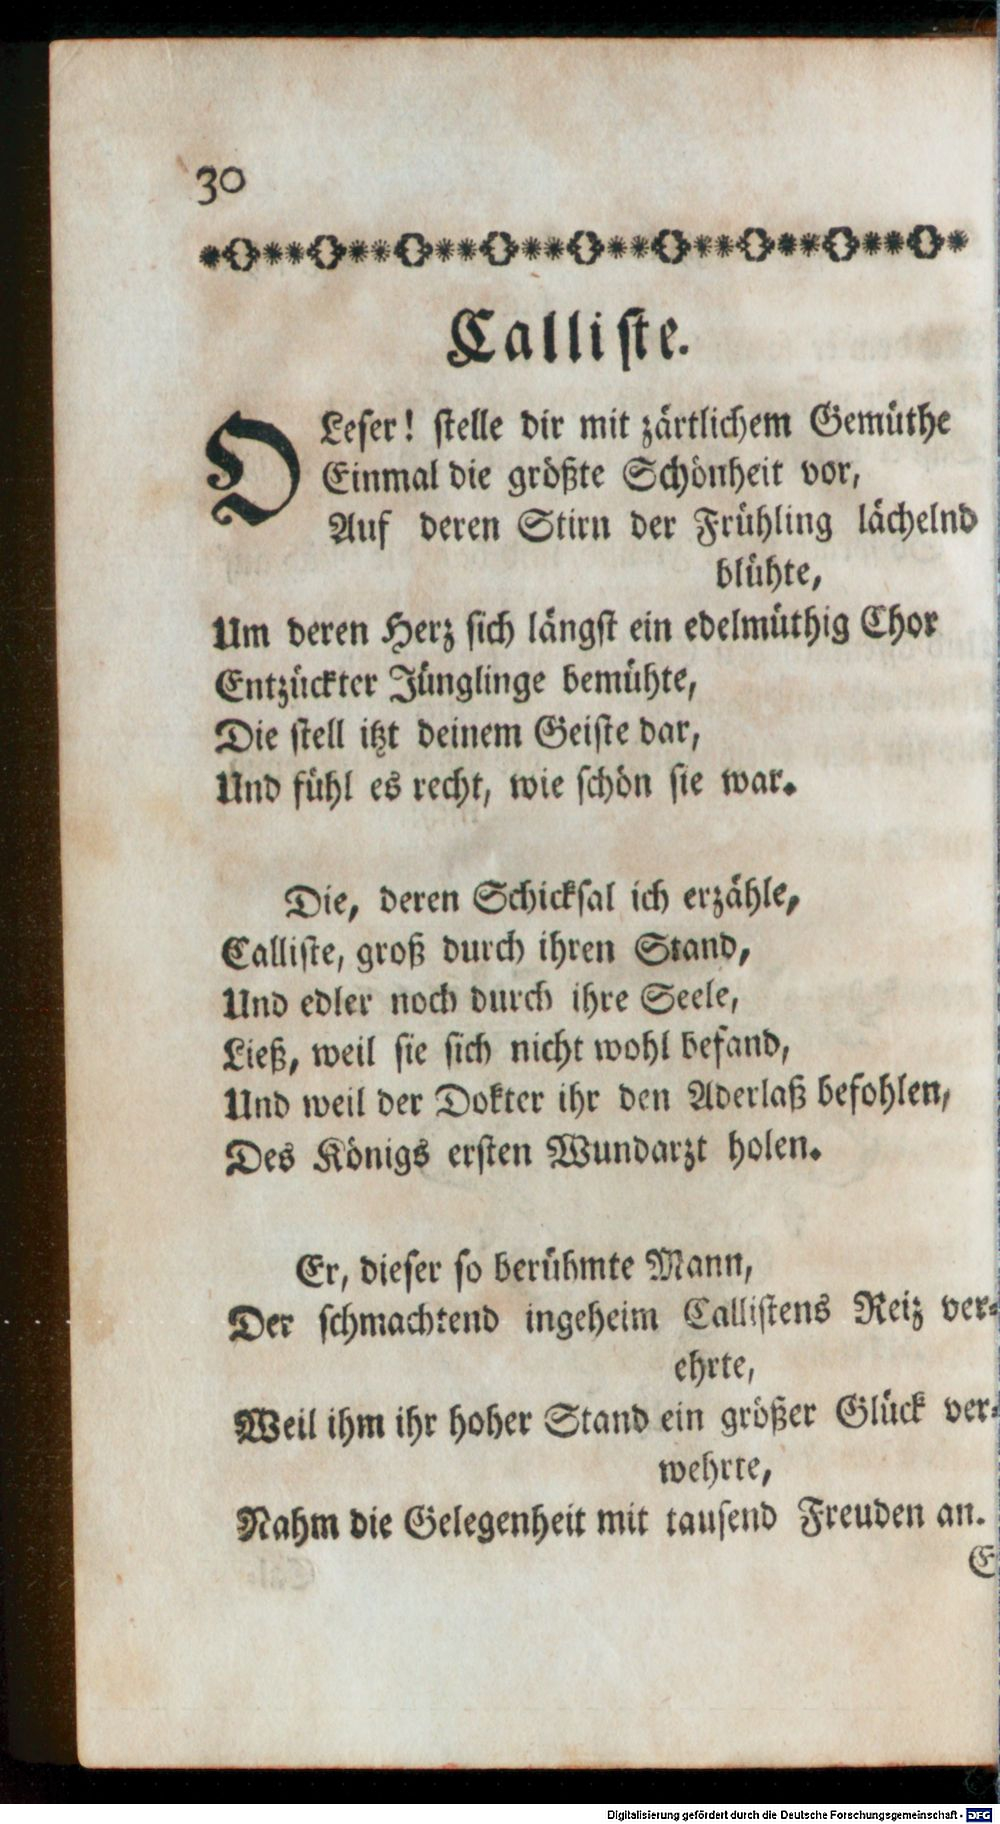 30
Calliste.
O Leser! stelle dir mit zärtlichem Gemüthe
Einmal die größte Schönheit vor,
Auf deren Stirn der Frühling lächelnd
blühte,
Um deren Herz sich längst ein edelmüthig Chor
Entzückter Jünglinge bemühte,
Die stell itzt deinem Geiste dar,
Und fühl es recht, wie schön sie war.
Die, deren Schicksal ich erzähle,
Calliste, groß durch ihren Stand,
Und edler noch durch ihre Seele,
Ließ, weil sie sich nicht wohl befand,
Und weil der Dokter ihr den Aderlaß befohlen,
Des Königs ersten Wundarzt holen.
Er, dieser so berühmte Mann,
Der schmachtend ingeheim Callistens Reiz ver-
ehrte,
Weil ihm ihr hoher Stand ein größer Glück ver-
wehrte,
Nahm die Gelegenheit mit tausend Freuden an.
Digitalisierung gefördert durch die Deutsche Forschungsgemeinschaft - DFG